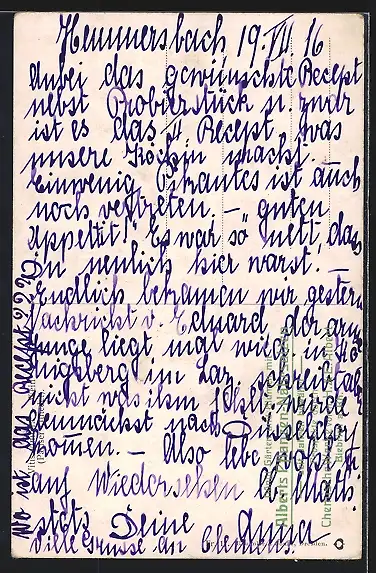 Hemmersbach, 19. VII. 16
Anbei das gewünschte Recept
nebst Probierstück u. zwar
ist es das II. Recept, was
unsere Köchin macht.
Einwenig Pikantes ist auch
noch vertreten. — „guten
Appetit!" Es war so nett, das
Du neulich hier warst. —
Endlich bekamen wir gestern
Nachricht v. Eduard, der arme
Junge liegt mal wied. in Kö-
nigsberg im Laz., schreibt aber
nicht was ihm fehlt, würde
demnächst nach Düsseldorf
kommen. — Also lebe wohl,
auf Wiedersehen
stets Deine
Anna
Viele Grüsse an Clemens.
Wo ist das Recept???
Alberts